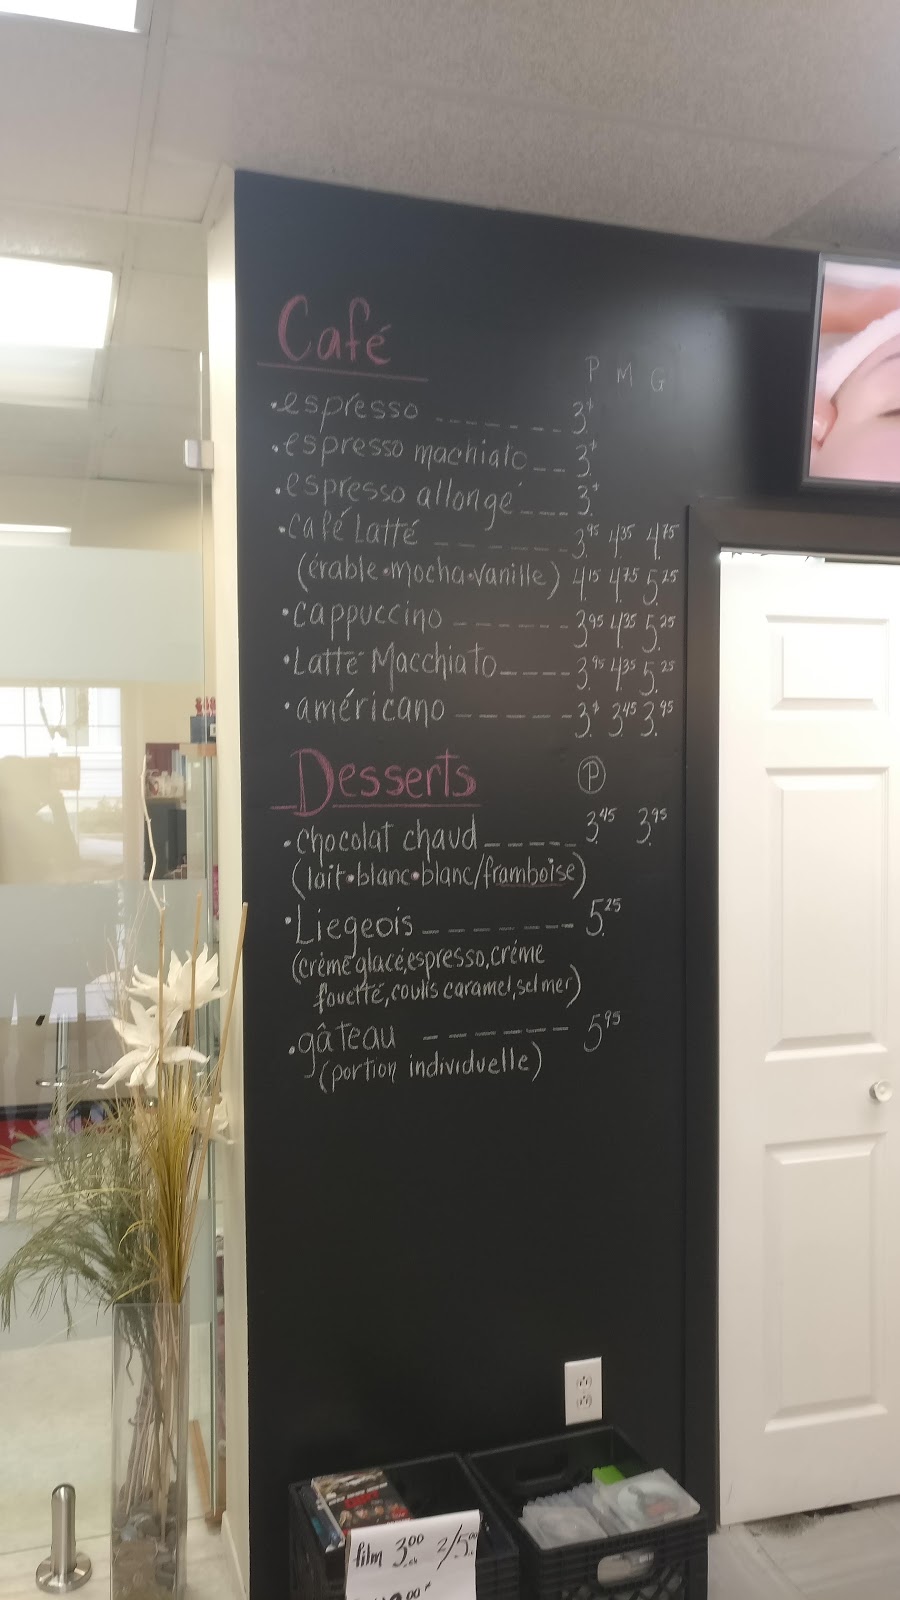 Café
P M G
•espresso _ _ _ _ _ _ _ 3.$
•espresso machiato _ _ _ 3.$
•espresso allongé _ _ _ _ 3.$
•café Latté _ _ _ _ _ _ _ 3.95 4.35 4.75
(érable•mocha•vanille) 4.15 4.75 5.25
•cappuccino _ _ _ _ _ _ _ 3.95 4.35 5.25
•Latté Macchiato _ _ _ _ _ 3.95 4.35 5.25
•américano _ _ _ _ _ _ _ 3.$ 3.45 3.95
Desserts P
•chocolat chaud _ _ _ _ _ 3.45 3.95
(lait•blanc•blanc/framboise)
•Liegeois _ _ _ _ _ _ _ _ 5.25
(crème glacé,espresso,créme
fouetté,coulis caramel,sel mer)
•gâteau _ _ _ _ _ _ 5.95
(portion individuelle)
film 3.00 ch 2/5.00